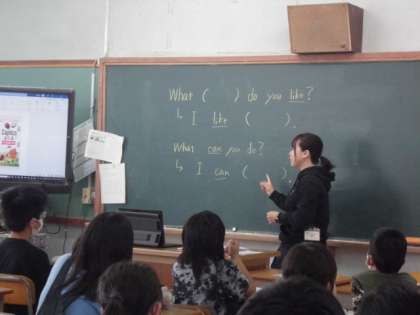 What (     ) do you like?
↳ I like (     ).
What can you do?
↳ I can (     ).